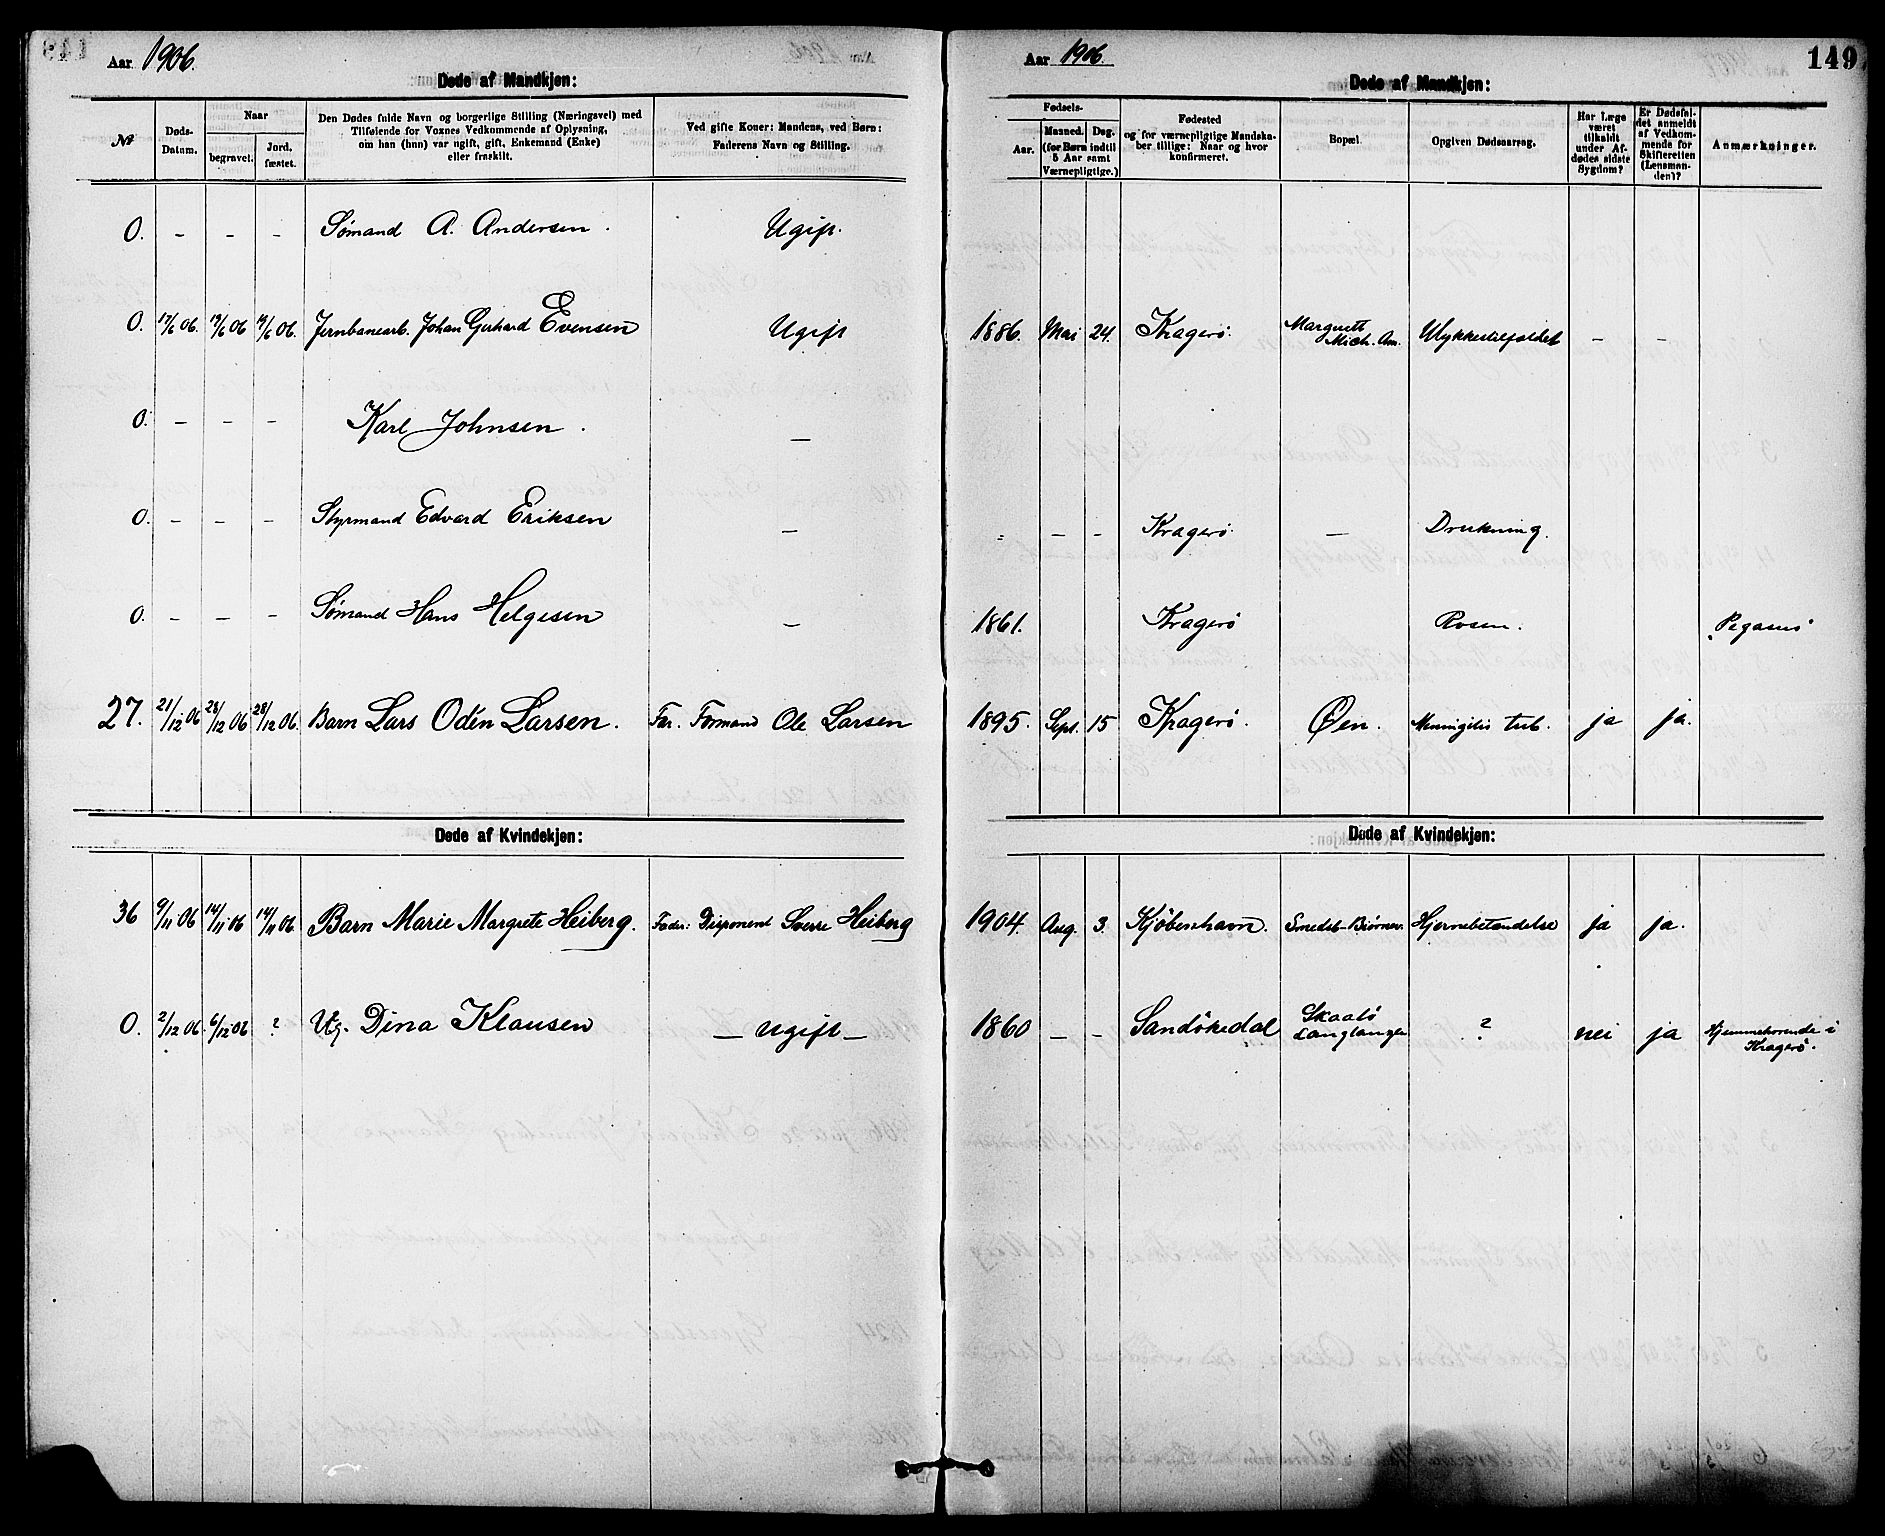 Aar 1906.
Døde af Mandkjøn:
№
Døds-Datum.
Naar
begravet.
Jord, fæstet.
Den Dødes fulde Navn og borgerlige Stilling (Næringsvei) med
Tilføiende for Voxnes Vedkommende af Oplysning,
om han (hun) var ugift, gift, Enkemand (Enke)
eller fraskilt.
Ved gifte Koner: Mandens, ved Børn:
Faderens Navn og Stilling.
0. – – – Sømand A. Andersen. Ugift.
0. 17/6 06. 19/6 06 19/6 06. Jernbanearb. Johan Gerhard Evensen Ugift
0. – – – Karl Johnsen. –
0. – – – Styrmand Edvard Eriksen –
0. – – – Sømand Hans Helgesen –
27. 21/12 06 28/12 06 28/12 06. Barn Lars Odén Larsen. Far. Formand Ole Larsen
Døde af Kvindekjøn:
36 9/11 06 14/11 06 14/11 06 Barn Marie Margrete Heiberg. Fader: Disponent Sverre Heiberg
0. 2/12 06. 6/12 06 ? Ug. Dina Klausen – ugift –
Aar 1906.
149.
Døde af Mandkjøn:
Fødsels-
Aar.
Maaned. Dag.
(for Børn indtil
5 Aar samt
Værnepligtige.)
Fødested
og for værnepligtige Mandska-
ber tillige: Naar og hvor
konfirmeret.
Bopæl.
Opgiven Dødsaarsag.
Har Læge
været
tilkaldt
under Af-
dødes sidste
Sygdom?
Er Dødsfal-
det anmeldt
af Vedkom-
mende for
Skifteretten
(Lensman-
den)?
Anmærkninger.
1886. Mai 24. Kragerø. Marquett Mich. Am. Ulykkestilfældet – –
– – – Kragerø. – Drukning.
1861. Kragerø "Pegasus"
1895. Sept. 15 Kragerø. Øen. Meningitis tub. ja ja.
Døde af Kvindekjøn:
1904. Aug. 3. Kjøbenhavn. Hjernebetændelse ja ja.
1860 – – Sandökedal Skaatö
Langtangen ? nei ja Hjemmehørende i
Kragerø.